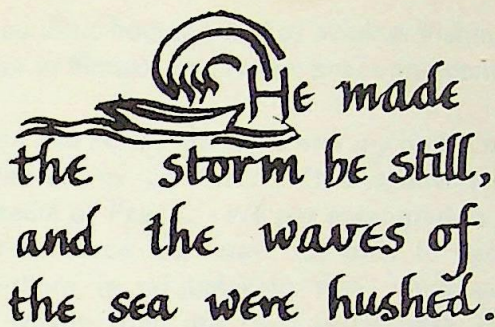 He made
the storm be still,
and the waves of
the sea were hushed.